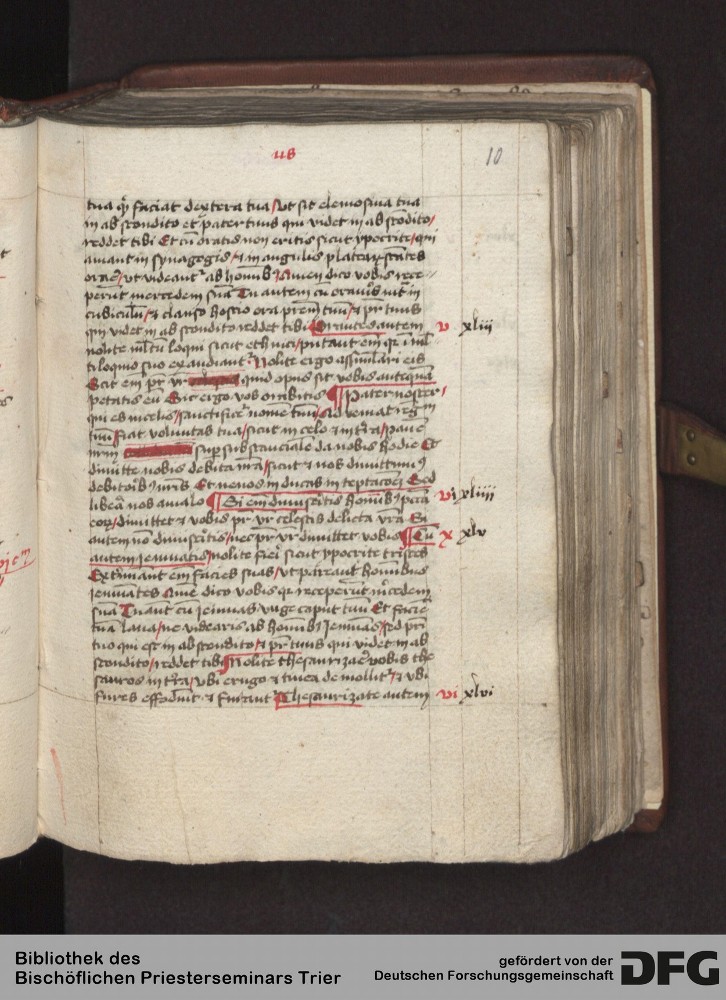 us
10
tua qͥ faciat dextera tua / vt sit elemosina tua
in abscondito et pater tuus qui videt in abscōdito /
reddet tibi Et cū oratis non eritis sicut ypocrite / qui
amant in synagogis / ⁊ in angulis platearꝝ stātes
orare / vt videantᷣ ab hoībꝫ / Amen dico vobis rece
perūt mercedem suā Tu autem cū oraūis int̄ in
cubiculū / ⁊ clauso hostio ora prem̄ tuū / ⁊ pr̄ tuus
qui videt in abscondito reddet tibi Orantes autem v xliii
nolite ml̄tū loqui sicut ethnici / putant em̄ qꝛ in ml̄
tiloquio suo exaudiantᷣ Nolite ergo assimilari eis
Scit em̄ pr̄ vr̄ quid opus sit vobis anteqᷓꝫ
petatis eū Sic ergo vos orabitis Pater noster /
qui es in celis / sanctificetᷣ nomē tuū / Adveniat regͫ
tuū / fiat voluntas tua / sicut in celo ⁊ in tr̄a / panē
nr̄m supersubstancialē da nobis hodie Et
dimitte nobis debita nr̄a / sicut ⁊ nos dimittimꝰ
debitoribꝫ nr̄is Et ne nos inducas in temptacōeꝫ Sed
libera nos a malo Si em̄ dimiseritis hoībꝫ pctā vi xliiii
eoꝝ / dimittet ⁊ vobis pr̄ vr̄ celestis delicta vr̄a Si
autem nō dimiseritis / nec pr̄ vr̄ dimittet vobis Cū x xlv
autem ieiunatis / nolite fieri sicut ypocrite tristes
Exterminant em̄ facies suas / vt pareant hominibus
ieiunātes Amē dico vobis qꝛ receperūt mercedem
suā Tu aūt cū ieiunas / unge caput tuū Et faciē
tuā laua / ne videaris ab hoībꝫ ieiunās / sed pr̄i
tuo qui est in abscondito / ⁊ pr̄ tuus qui videt in ab
scondito / reddet tibi Nolite thesaurizare vobis the
sauros in tr̄a / vbi erugo ⁊ tinea demolitᷣ / ⁊ vbi
fures effodiūt ⁊ furantᷣ Thesaurizate autem vi xlvi
Bibliothek des
Bischöflichen Priesterseminars Trier
gefördert von der
Deutschen Forschungsgemeinschaft
DFG